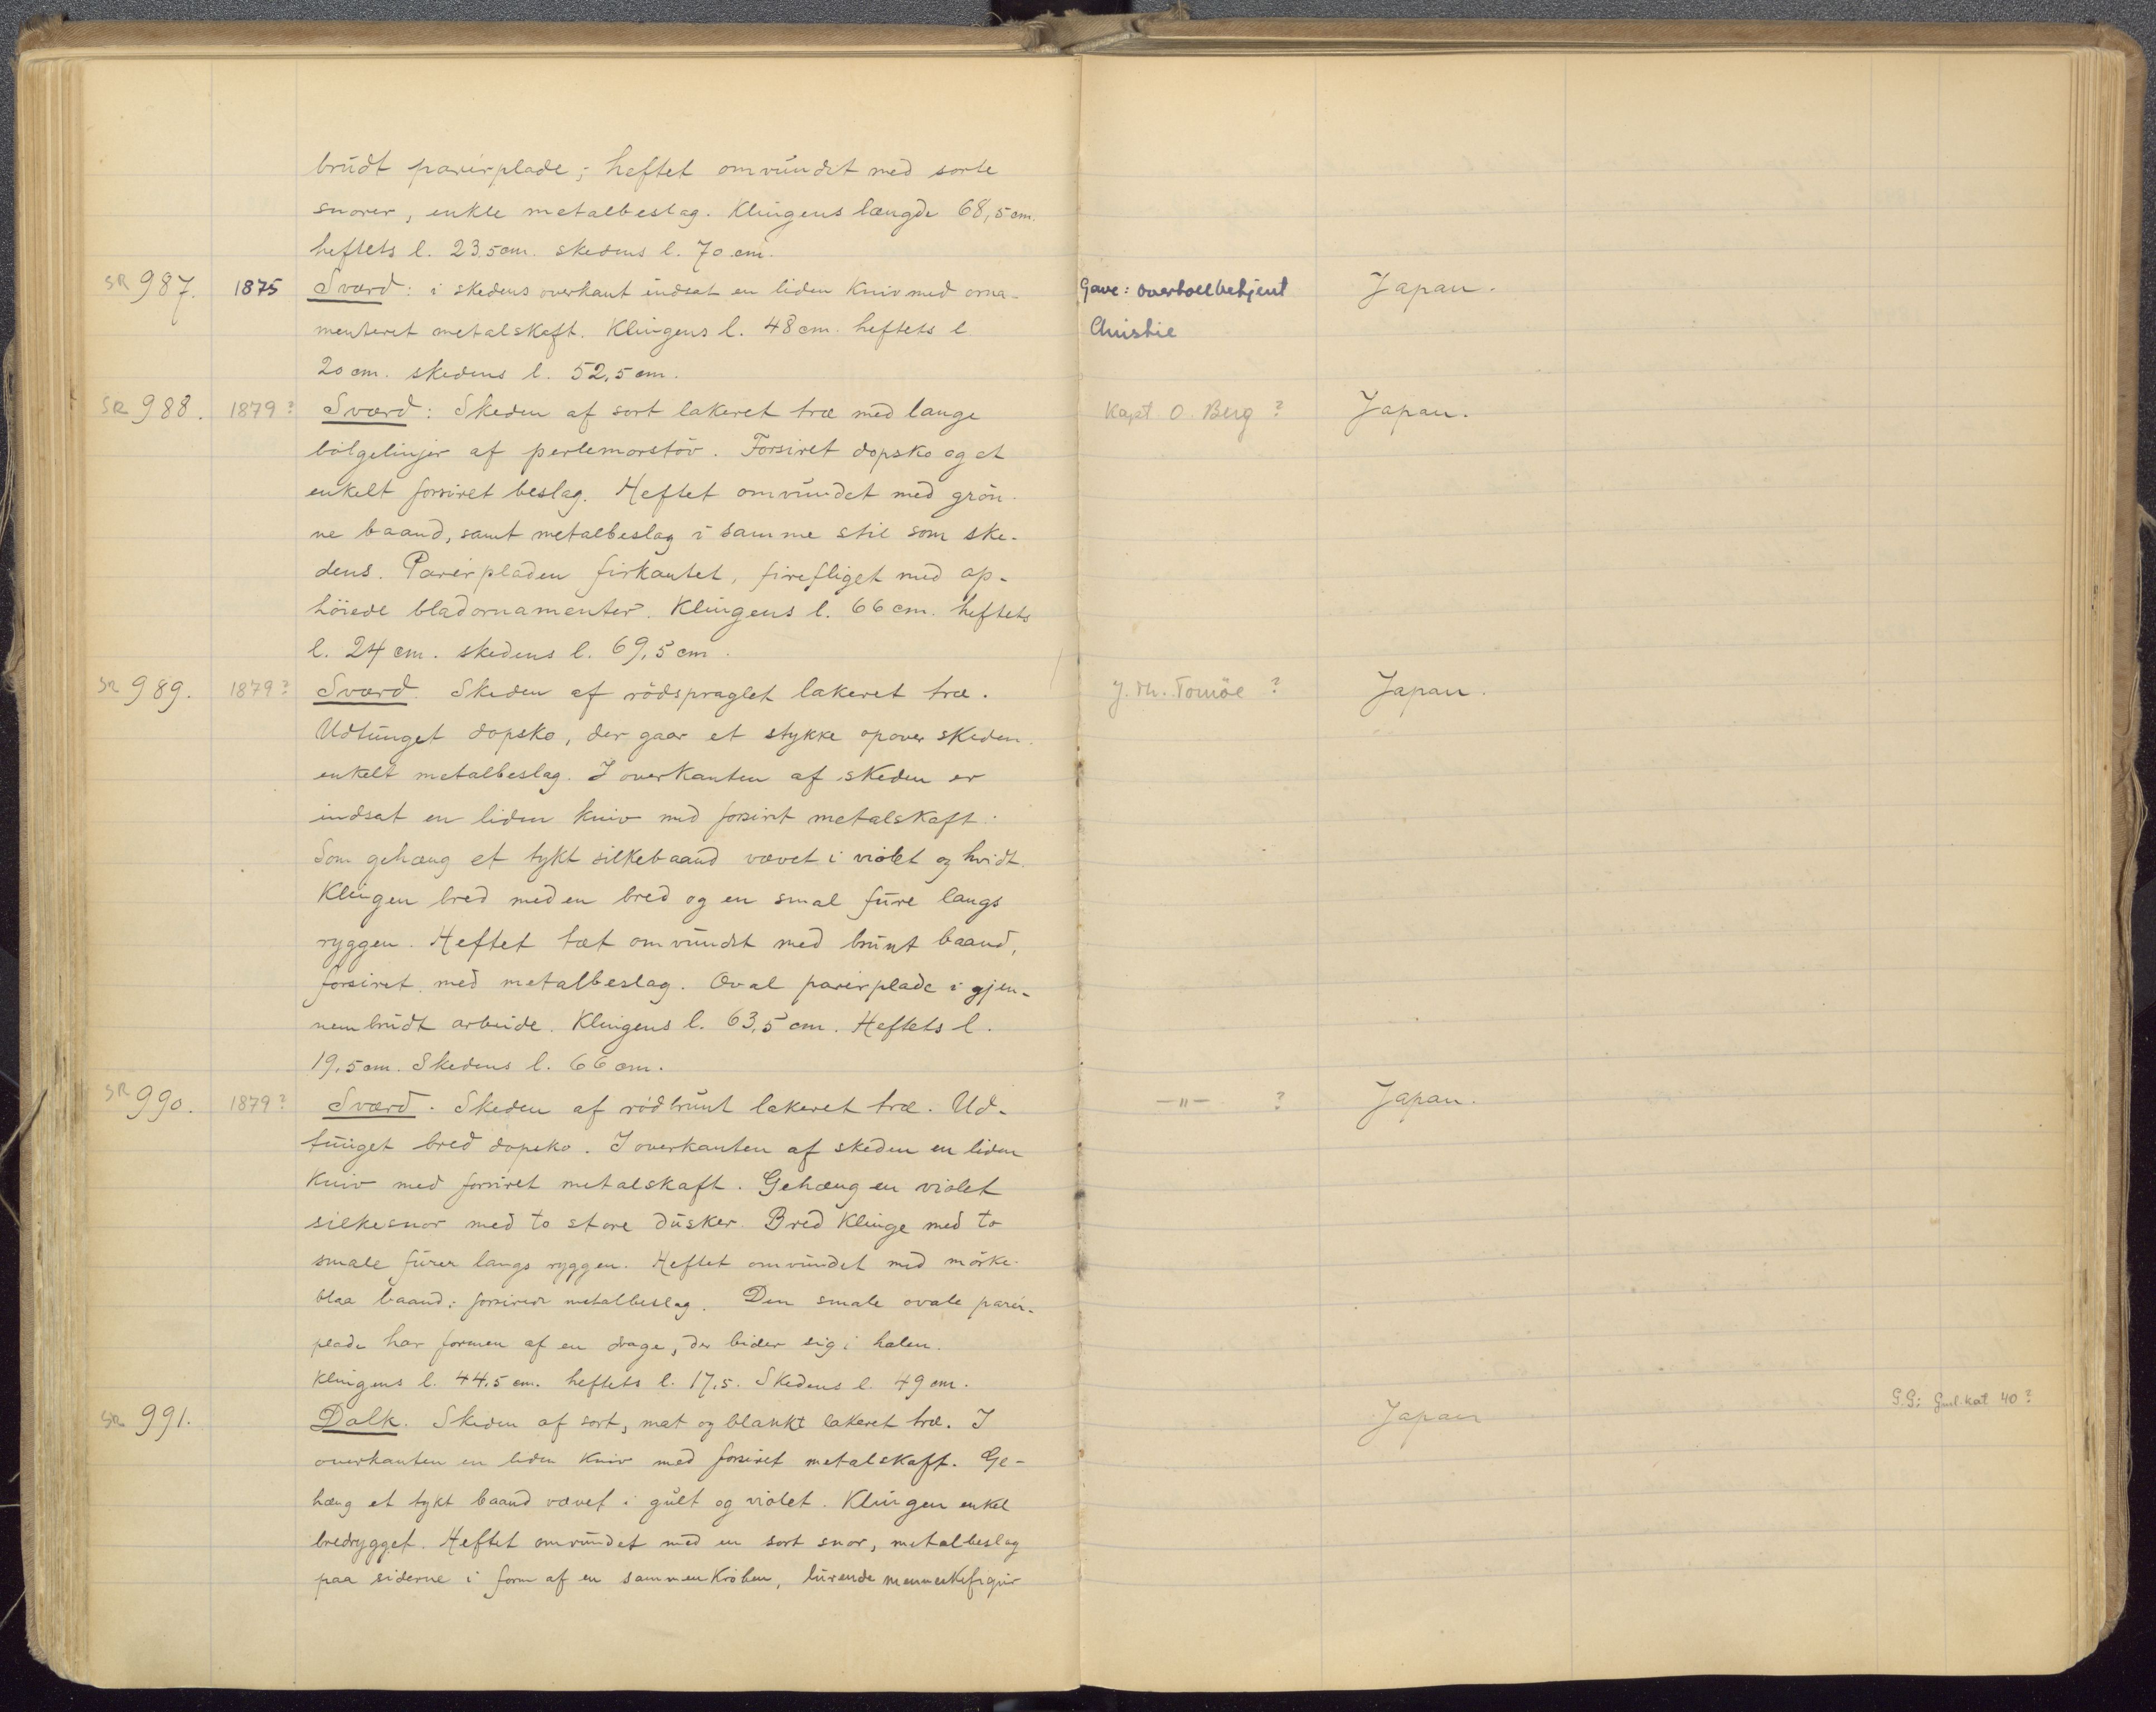 brudt parérplade; heftet omvundet med sorte
snorer, enkle metalbeslag. Klingens længde 68,5 cm.
heftets l. 23.5 cm. skedens l. 70 cm.
SR 987. 1875 Sværd: i skedens overkant indsat en liden Kniv med orna- Gave: Overtoldbetjent Japan.
menteret metalskaft. Klingens l. 48 cm. heftets l Christie
20 cm. skedens l. 52,5 cm.
SR 988. 1879? Sværd: Skeden af sort lakeret træ med lange Kapt. O. Berg ? Japan.
bölgelinjer af perlemorstöv. Forsiret dopsko og et
enkelt forsiret beslag. Heftet omvundet med grön-
ne baand, samt metalbeslag i samme stil som ske-
dens. Parérpladen firkantet, firefliget med op-
höiede bladornamenter. Klingens l. 66 cm. heftets
l. 24 cm. skedens l. 69,5 cm.
SR 989. 1879? Sværd. Skeden af rödspraglet lakeret træ. J. Th. ? Japan.
Udtunget dopsko, der gaar et stykke opover skeden.
enkelt metalbeslag. I overkanten af skeden er
indsat en liden kniv med forsiret metalskaft.
Som gehæng et tykt silkebaand vævet i violet og hvidt.
Klingen bred med en bred og en smal fure langs
ryggen. Heftet tæt omvundet med brunt baand,
forsiret med metalbeslag. Oval parérplade i gjen-
nembrudt arbeide. Klingens l. 63,5 cm. Heftets l.
19,5 cm. Skedens l. 66 cm.
SR 990. 1879? Sværd. Skeden af rödbrunt lakeret træ. Ud- —"— ? Japan.
tunget bred dopsko. I overkanten af skeden en liden
Kniv med forsiret metalskaft. Gehæng en violet
silkesnor med to store dusker. Bred Klinge med to
smale furer langs ryggen. Heftet omvundet med mörke-
blaa baand; forsiret metalbeslag. Den smale ovale parér-
plade har formen af en drage, der bider sig i halen.
Klingens l. 44.5 cm. heftets l. 17,5. Skedens l. 49 cm.
SR 991. Dolk. Skeden af sort, mat og blankt lakeret træ. I Japan G.G: Gml. kat 40?
overkanten en liden Kniv med forsiret metalskaft. Ge-
hæng et tykt baand vævet i gult og violet. Klingen enkel
bredrygget. Heftet omvundet med en sort snor, metalbeslag
paa siderne i form af en sammenkröben, lurende menneskefigur